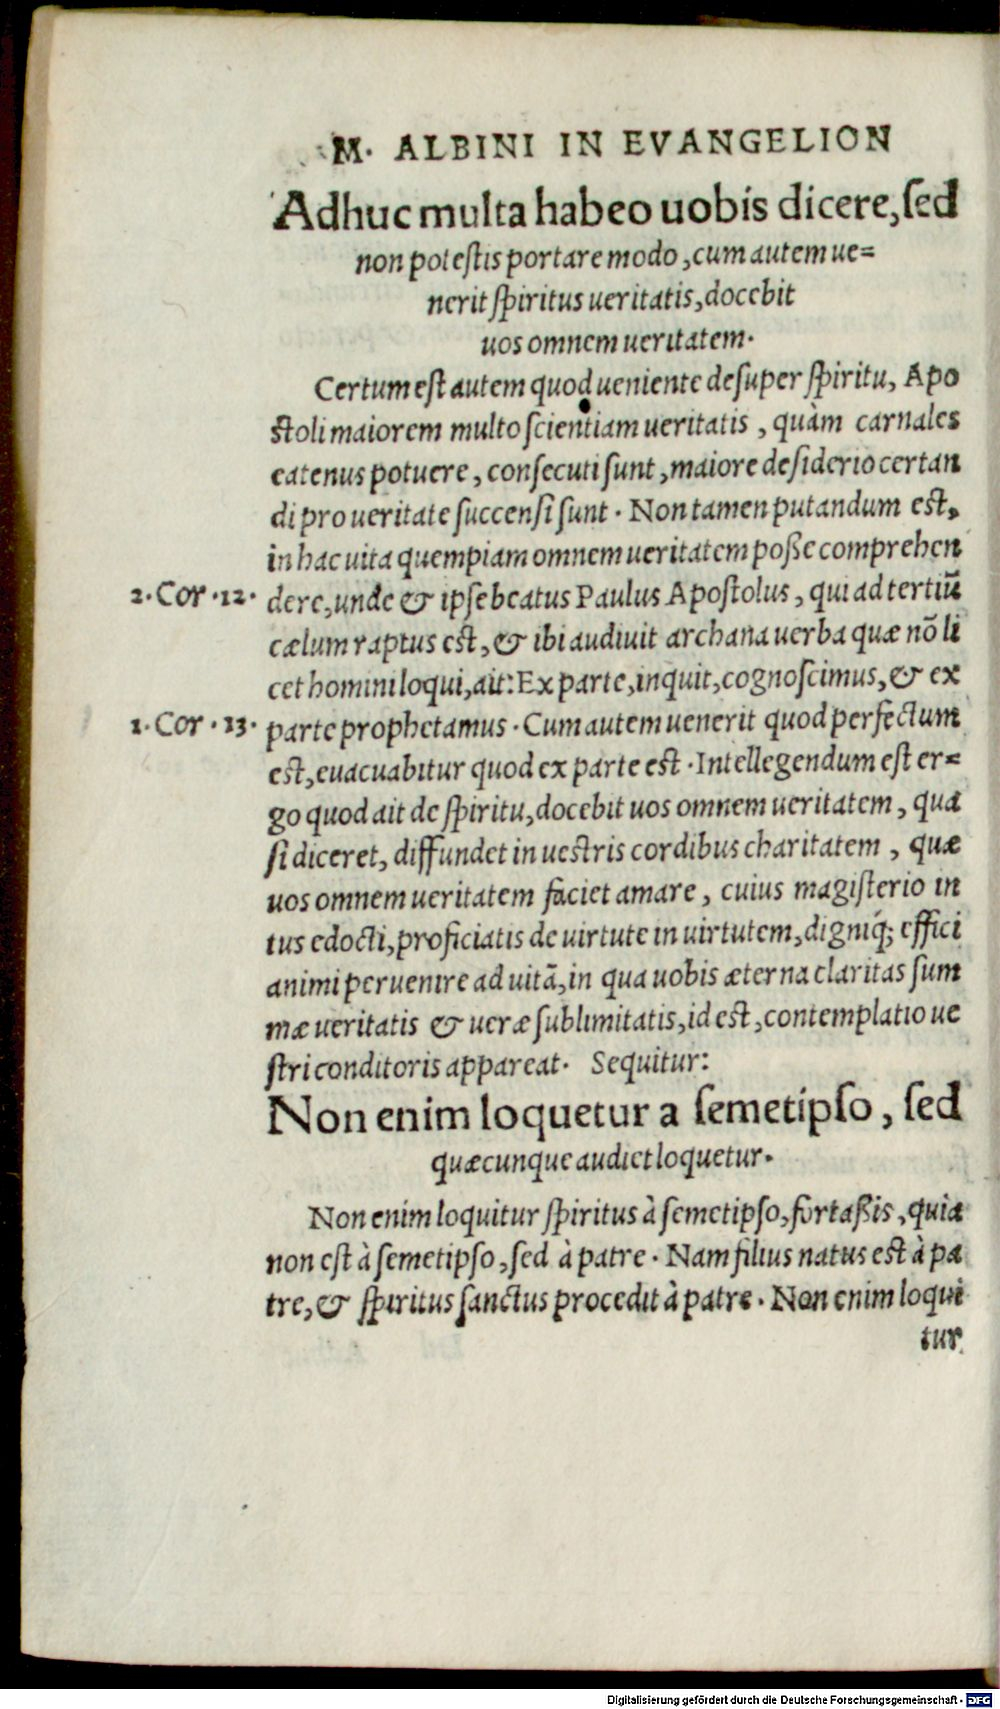 M. ALBINI IN EVANGELION
Adhuc multa habeo uobis dicere, sed
non potestis portare modo, cum autem ue=
nerit spiritus ueritatis, docebit
uos omnem ueritatem.
Certum est autem quod ueniente desuper spiritu, Apo
stoli maiorem multo scientiam ueritatis, quàm carnales
eatenus potuere, consecuti sunt, maiore desiderio certan
di pro ueritate succensi sunt. Non tamen putandum est,
in hac uita quempiam omnem ueritatem poße comprehen
2. Cor. 12. dere, unde & ipse beatus Paulus Apostolus, qui ad tertiū
cælum raptus est, & ibi audiuit archana uerba quæ nō li
cet homini loqui, ait: Ex parte, inquit, cognoscimus, & ex
1. Cor. 13. parte prophetamus. Cum autem uenerit quod perfectum
est, euacuabitur quod ex parte est. Intellegendum est er=
go quod ait de spiritu, docebit uos omnem ueritatem, qua
si diceret, diffundet in uestris cordibus charitatem, quæ
uos omnem ueritatem faciet amare, cuius magisterio in
tus edocti, proficiatis de uirtute in uirtutem, digniq́; effici
animi peruenire ad uitā, in qua uobis æterna claritas sum
mæ ueritatis & ueræ sublimitatis, id est, contemplatio ue
stri conditoris appareat. Sequitur:
Non enim loquetur a semetipso, sed
quæcunque audiet loquetur.
Non enim loquitur spiritus à semetipso, fortaßis, quia
non est à semetipso, sed à patre. Nam filius natus est à pa
tre, & spiritus sanctus procedit à patre. Non enim loqui
tur
Digitalisierung gefördert durch die Deutsche Forschungsgemeinschaft - DFG